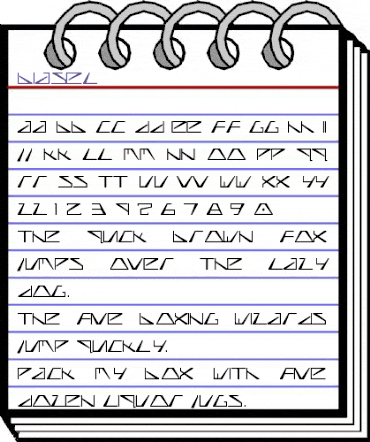 biasel
aa bb cc dd ee ff gg hh ii
jj kk ll mm nn oo pp qq
rr ss tt uu vv ww xx yy
zz 1 2 3 4 5 6 7 8 9 0
The quick brown fox
jumps over the lazy
dog.
The five boxing wizards
jump quickly.
Pack my box with five
dozen liquor jugs.